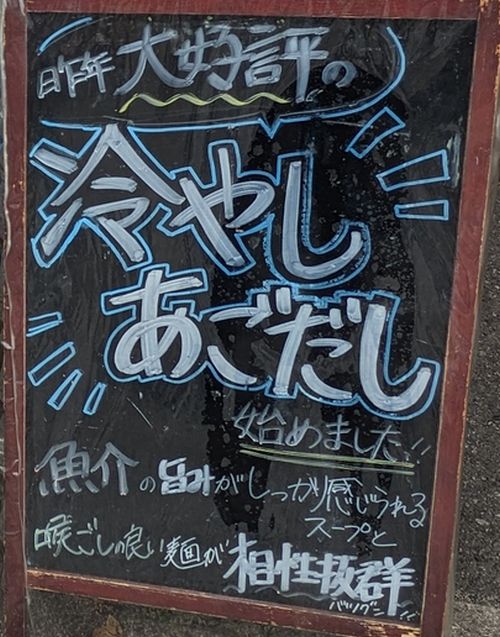 昨年大好評の
冷やし
あごだし
始めました!!
魚介の旨みがしっかり感じられる
スープと
喉ごしの良い麺が相性抜群
バツグン